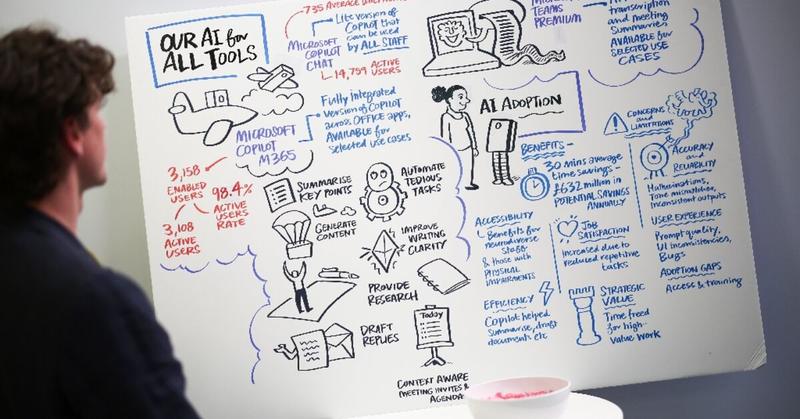 OUR AI for
ALL TOOLS
735 AVERAGE
MICROSOFT
COPILOT
CHAT
Lite version of
COPILOT that
can be used
by ALL STAFF
14,759 ACTIVE
USERS
MICROSOFT
COPILOT
M365
Fully integrated
version of COPILOT
across OFFICE apps,
AVAILABLE for
selected use cases
3,158
ENABLED
USERS
98.4%
ACTIVE
USERS
RATE
3,108
ACTIVE
USERS
SUMMARISE
KEY POINTS
AUTOMATE
TEDIOUS
TASKS
GENERATE
CONTENT
IMPROVE
WRITING
CLARITY
PROVIDE
RESEARCH
DRAFT
REPLIES
Today
CONTEXT AWARE
MEETING INVITES &
AGENDA
TEAMS
PREMIUM
transcription
and meeting
Summaries
AVAILABLE for
SELECTED USE
CASES
AI ADOPTION
BENEFITS-
30 mins average
time savings -
£632 million in
POTENTIAL SAVINGS
ANNUALLY
ACCESSIBILITY
Benefits for
neurodiverse
staff
& those with
PHYSICAL
IMPAIRMENTS
JOB
SATISFACTION
Increased due to
reduced repetitive
tasks
EFFICIENCY
Copilot helped
summarise, draft
documents etc
STRATEGIC
VALUE
Time freed
for high-
value work
CONCERNS
and
LIMITATIONS
ACCURACY
and
RELIABILITY
Hallucinations,
Tone mismatches,
inconsistent outputs
USER EXPERIENCE
Prompt quality,
UI inconsistencies,
Bugs
ADOPTION GAPS
Access & training